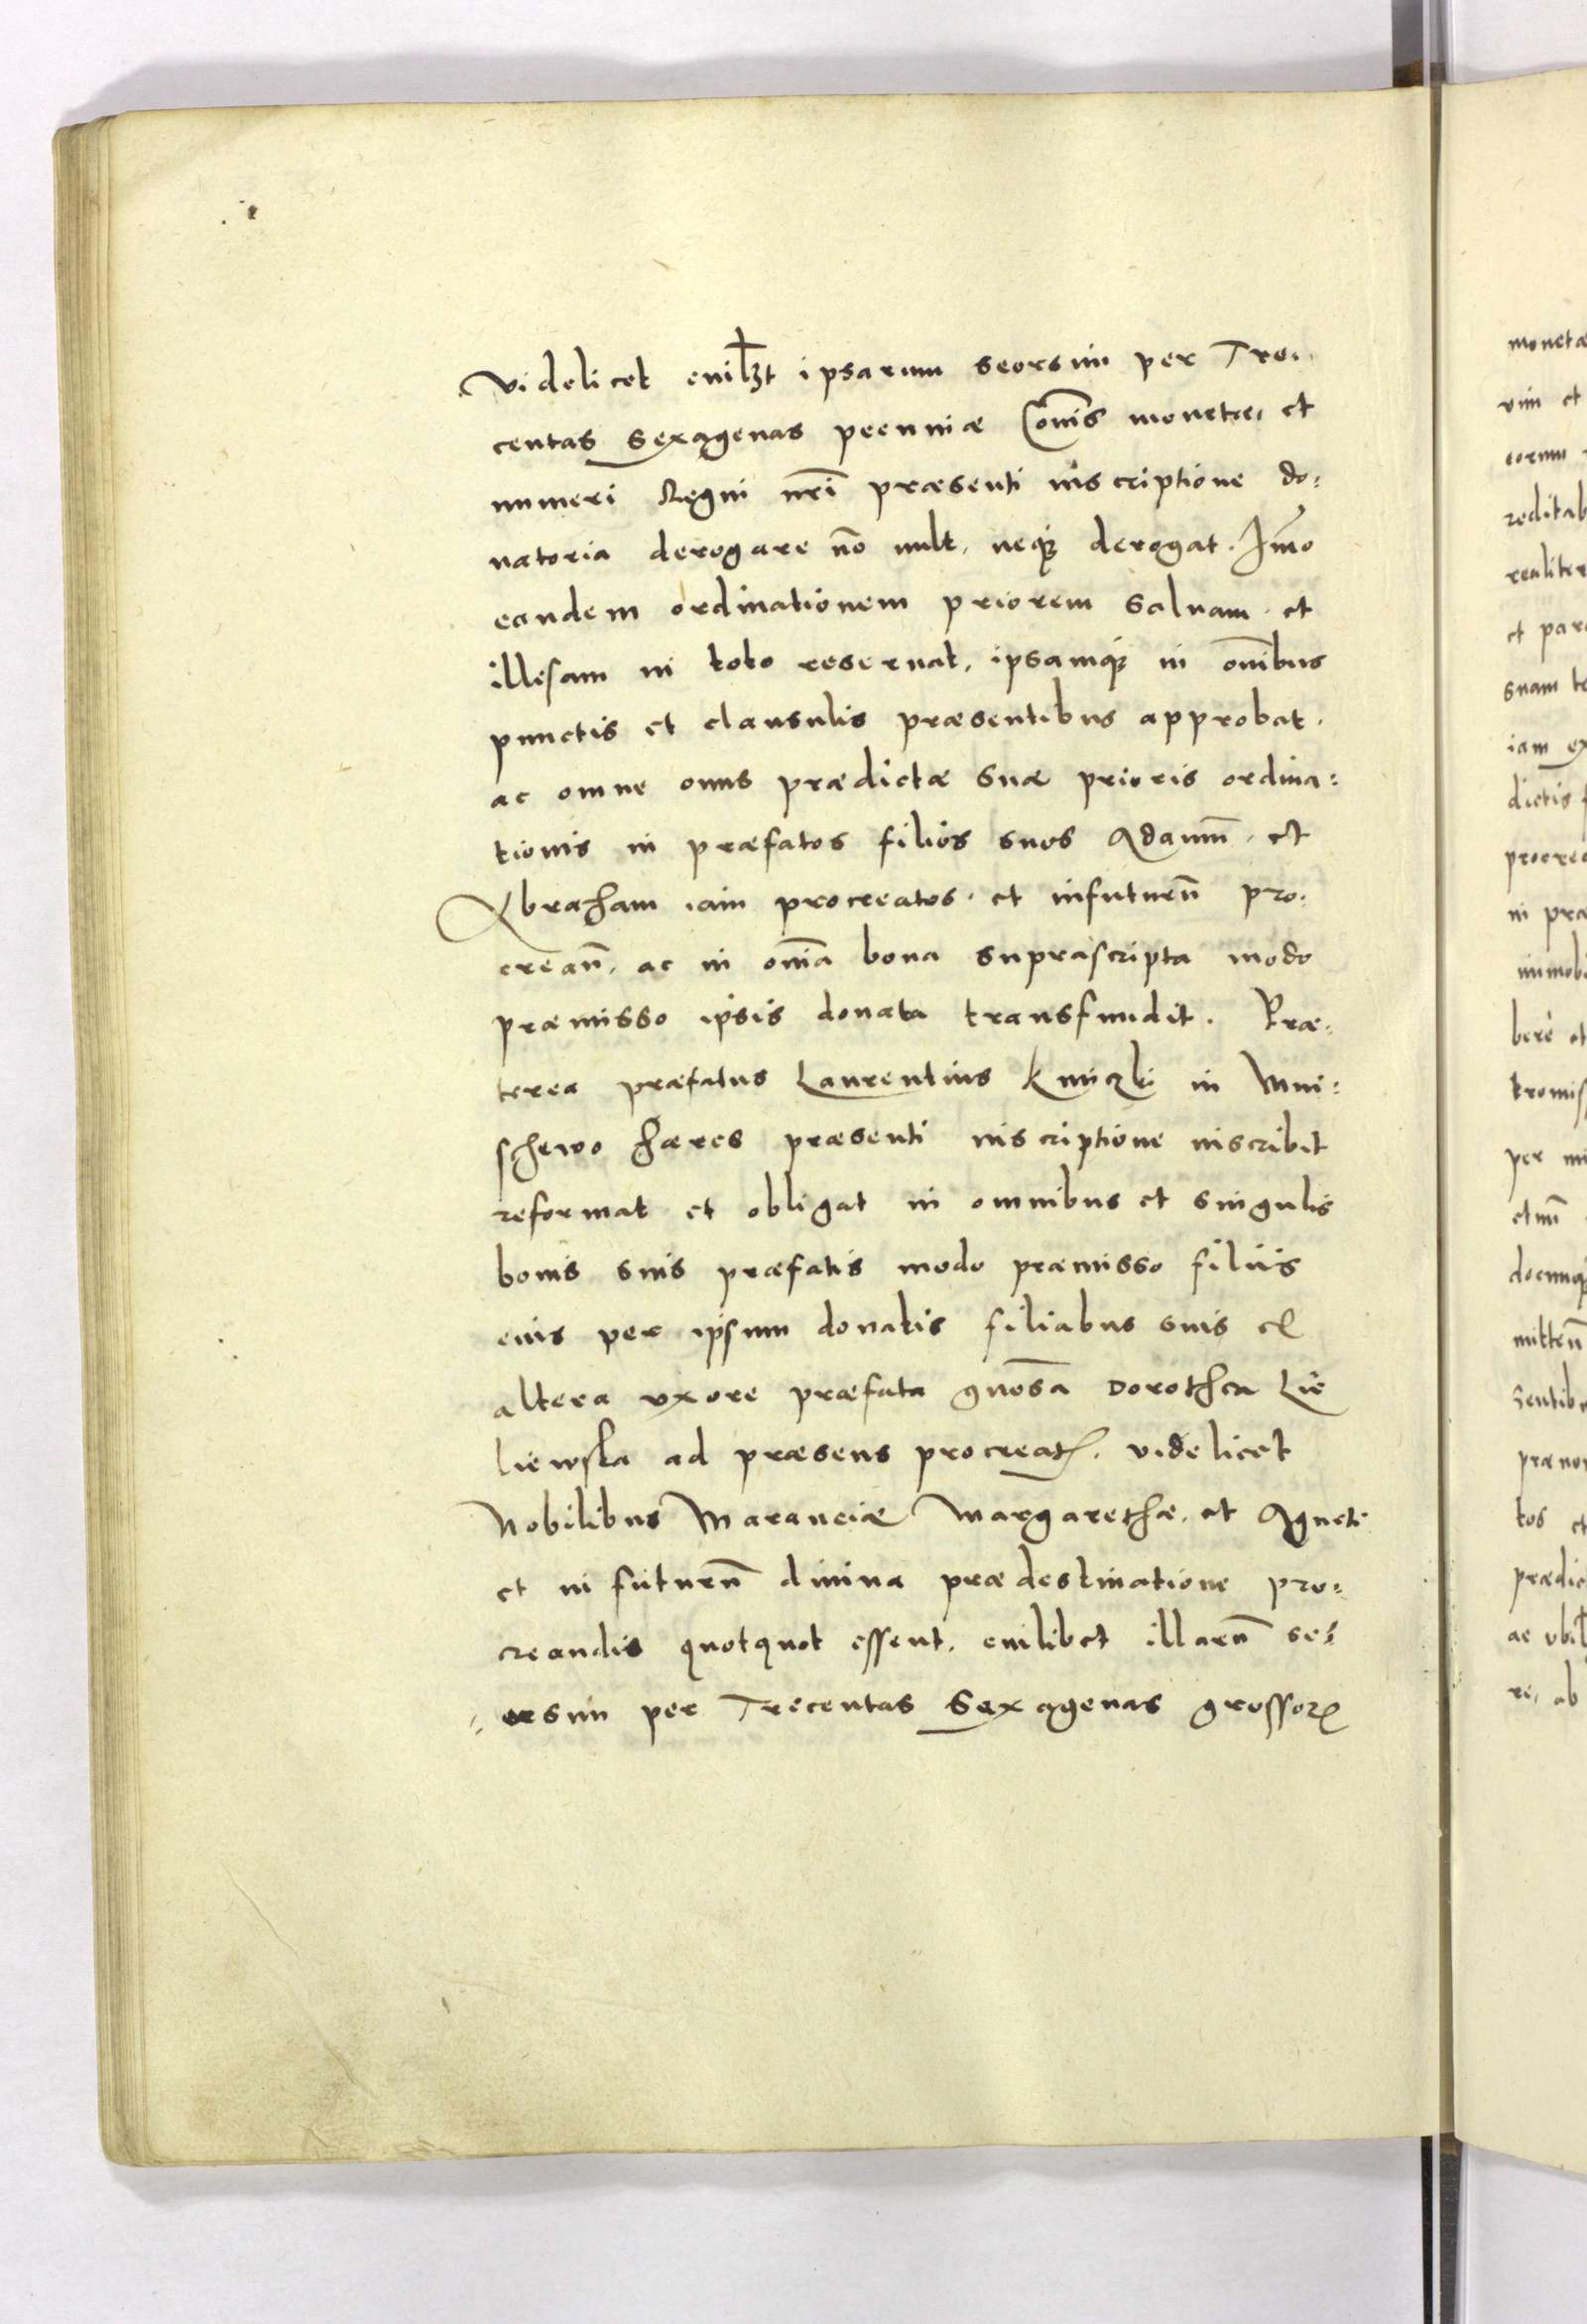 videlicet cuilbꝫt ipsarum seorsim per Tre-
centas Sexagenas pecuniæ Co̅is monetæ, et
numeri Regni nr̅i præsenti inscriptione do:
natoria derogare no̅ vult, neqꝫ derogat. Im̅o
eandem ordinationem priorem salvam. et
illesam in toto reservat, ipsamqꝫ in om̅ibus
punctis et clausulis præsentibus approbat.
ac omne onus prædictæ suæ prioris ordina:
tionis in præfatos filios suos Adamu̅. et
Abraham iam procreatos. et infuturu̅ pro:
crean̅. ac in om̅ia bona suprascripta modo
præmisso ipsis donata transfundit. Præ:
terea præfatus Laurentius Kmiczki in Mni:
schewo hæres præsenti inscriptione inscribit
reformat et obligat in omnibus et singulis
bonis suis præfatis modo præmisso filiis
eius per ipsum donatis filiabus suis cu̅
altera uxore præfata gn̅osa Dorothea Lie
liewska ad præsens procreat̅. videlicet
Nobilibus Maranciæ Margarethæ, et Agneti
et in futuru̅ divina prædestinatione pro:
creandis quotquot essent, cuilibet illaru̅ se:
:orsim per Trecentas Sexagenas grossorꝝ
monetæ
vim et
eorum
reditab
realiter
et par
suam te
iam ex
dictis f
procrea
in præ
immobi
bere et
tromis
per mi
etum̅
docunqꝫ
mitten̅
sentibu
præno
tos et
prædic
ac ubil
re, ab